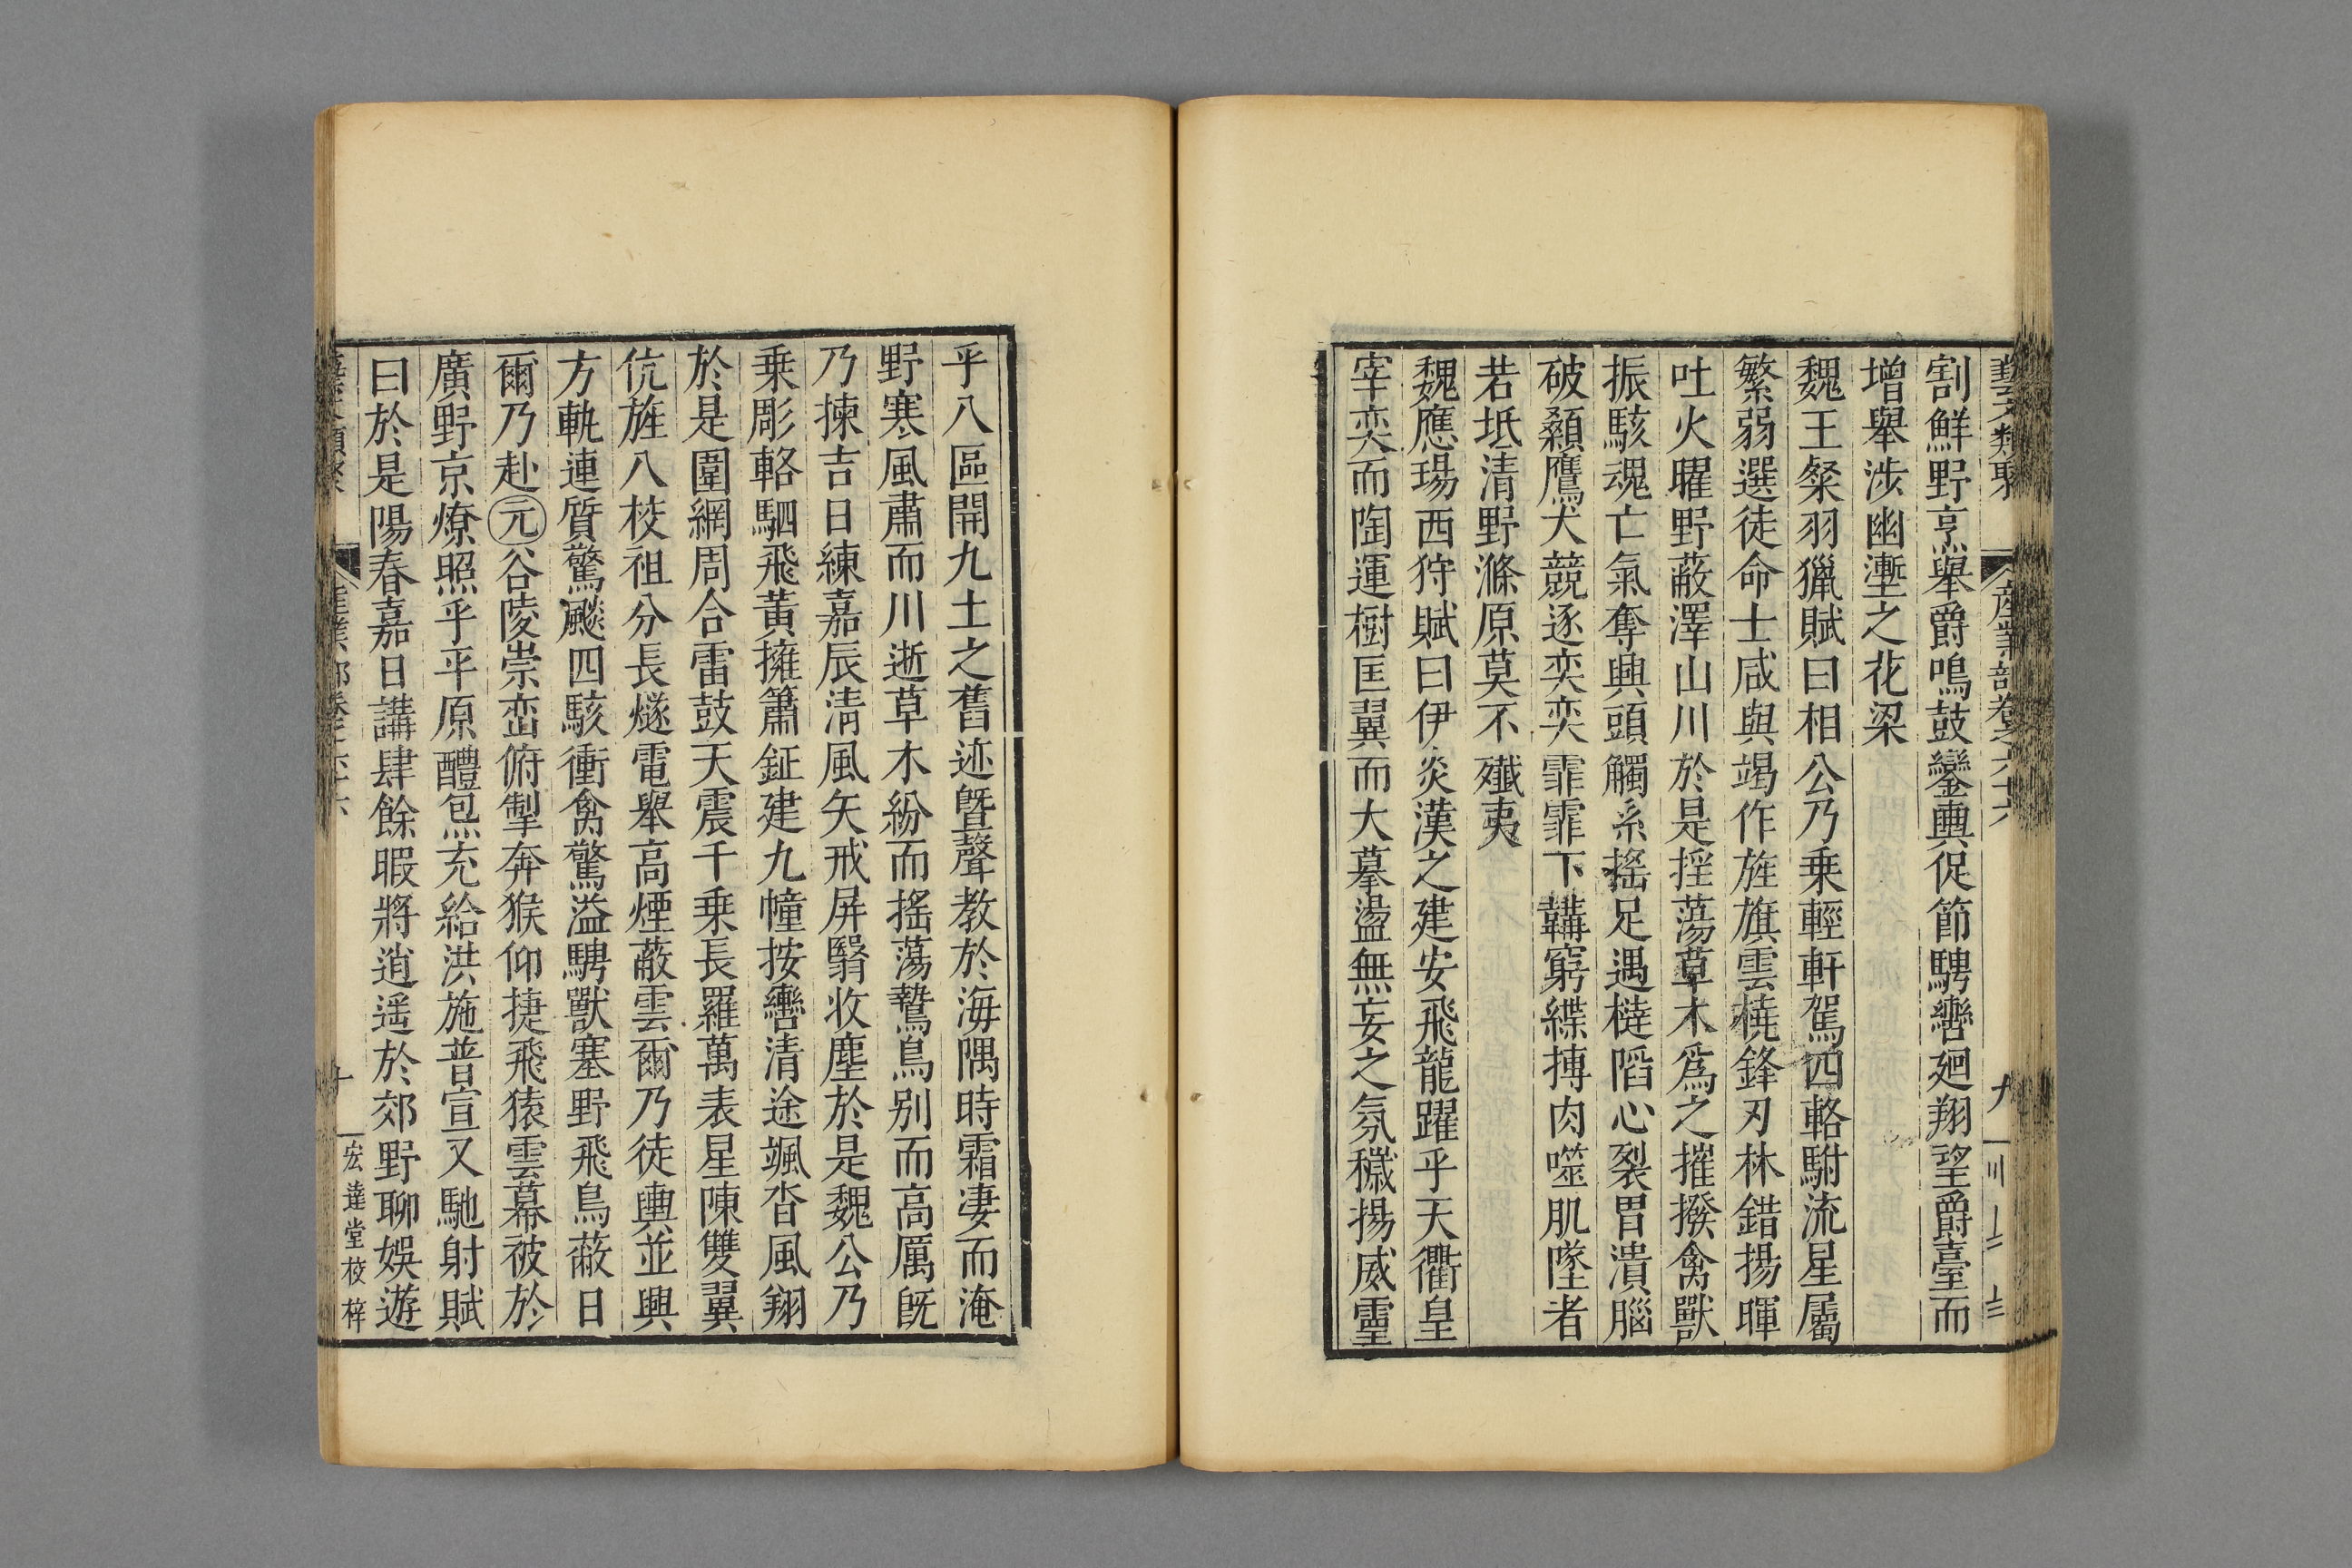 藝文類聚 產業部卷之六十六 九
割鮮野烹舉爵鳴鼓鑾輿促節騁轡廻翔望爵臺而
增舉涉幽壍之花梁
魏王粲羽獵賦曰相公乃乗輕軒駕四輅駙流星屬
繁弱選徒命士咸與竭作旌旗雲橈鋒刃林錯揚暉
吐火曜野蔽澤山川於是搖蕩草木爲之摧撥禽獸
振駭魂亡氣奪興頭觸系搖足遇撻䧟心裂胃潰腦
破顙鷹犬競逐奕奕霏霏下韝窮緤摶肉噬肌墜者
若坻清野滌原莫不殲夷
魏應瑒西狩賦曰伊炎漢之建安飛龍躍乎天衢皇
宰奕而陶運樹匡翼而大摹盪無妄之氛穢揚威靈
乎八區開九土之舊迹曁聲教於海隅時霜淒而淹
野寒風肅而川逝草木紛而搖蕩鷙鳥别而高厲旣
乃揀吉日練嘉辰清風矢戒屏翳收塵於是魏公乃
乗彫輅駟飛黃擁簫鉦建九幢按轡清途颯沓風翔
於是圍網周合雷鼓天震千乗長羅萬表星陳雙翼
伉旌八校祖分長燧電舉高煙蔽雲爾乃徒輿並興
方軌連質驚颷四駭衝禽驚溢騁獸塞野飛鳥蔽日
爾乃赴元谷陵崇巒俯掣奔猴仰捷飛猿雲幕被於
廣野京燎照乎平原醴炰充給洪施普宣又馳射賦
曰於是陽春嘉日講肆餘暇將逍遥於郊野聊娛遊
藝文類聚 產業部卷之六十六 十 宏達堂校梓